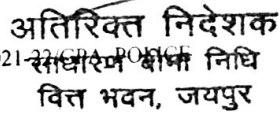 अतिरिक्त निदेशक
21-22/GPA-POLICE
साधारण बीमा निधि
वित्त भवन, जयपुर